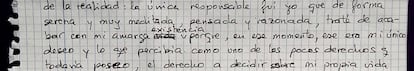 de la realidad: la única responsable fui yo que de forma
serena y muy meditada, pensada y razonada, traté de aca-
bar con mi amarga existencia porque, en ese momento, ese era mi único
deseo y lo que percibía como uno de los pocos derechos q
todavía poseo, el derecho a decidir sobre mi propia vida